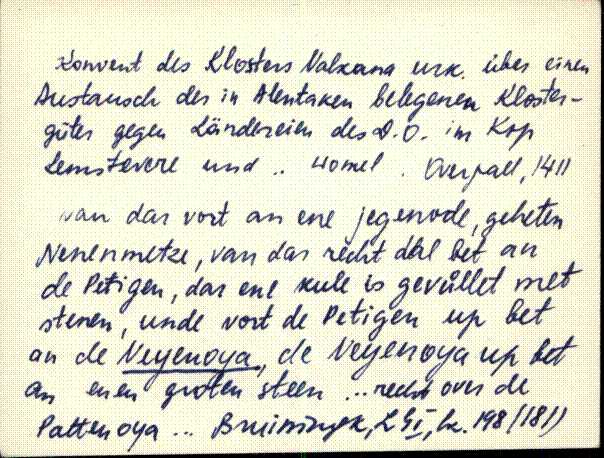 Konvent des Klosters Valkana urk. über einen
Austausch der in Alentaken belegenen Kloster-
güter gegen Ländereien des D.O. im Ksp
und .. . Overpall, 1411
van dar vort an ene jegenode, geheten
Nenenmetze, van dar recht dal bet an
de Petigen, dar ene kule is gevüllet met
stenen, unde vort de Petigen up bet
an de Neyenoya, de Neyenoya up bet
an enen groten steen ... recht over de
Pattenoya ... Bruiningk, LGI, lk. 198 (181)